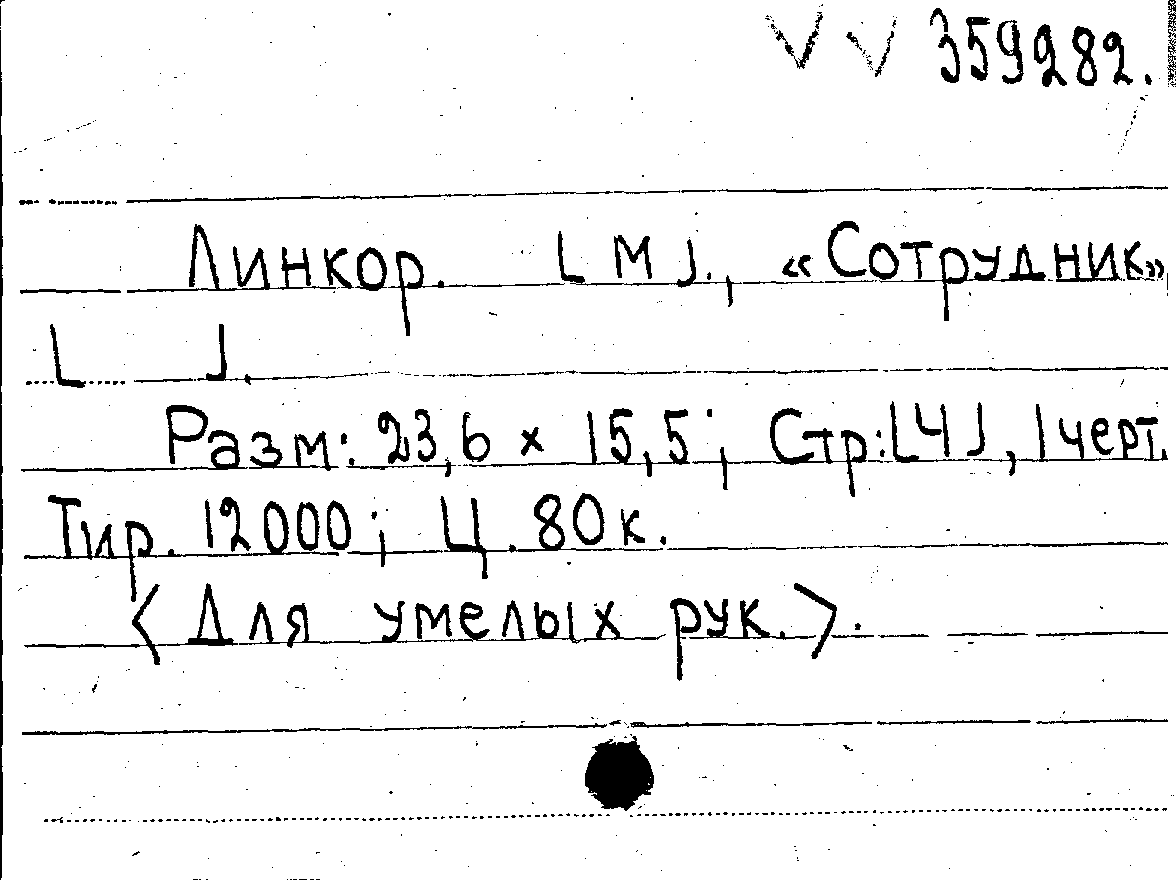 VV 359282.
Линкор. [М]., «Сотрудник»
[ ].
Разм: 23,6 x 15,5; Стр: [4], 1 черт.
Тир. 12000; Ц. 80 к.
<Для умелых рук.>.